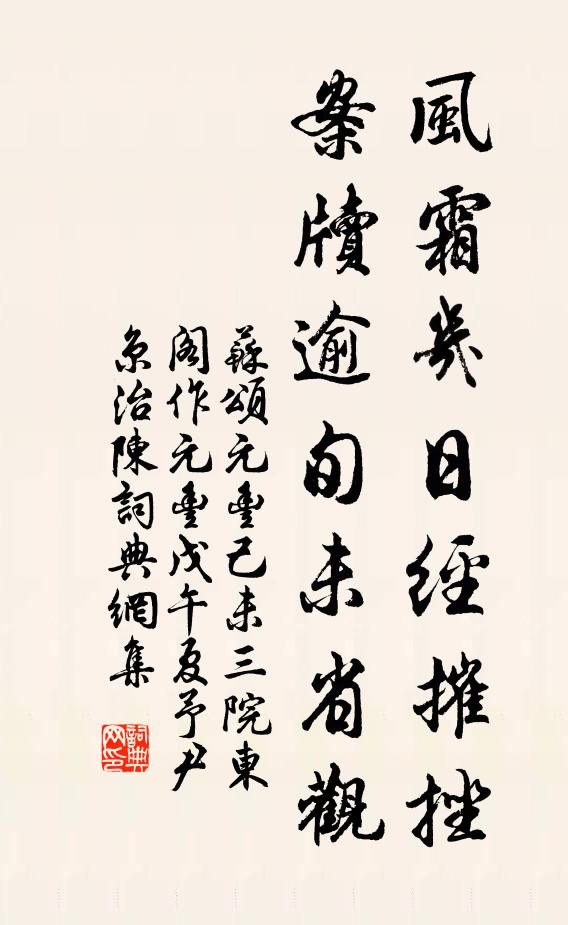 風霜幾日經摧挫
案牘逾旬未省觀
蘇頌元豐己未三院東
閣作元豐戊午夏予尹
京治陳詞典網集
詞典网印